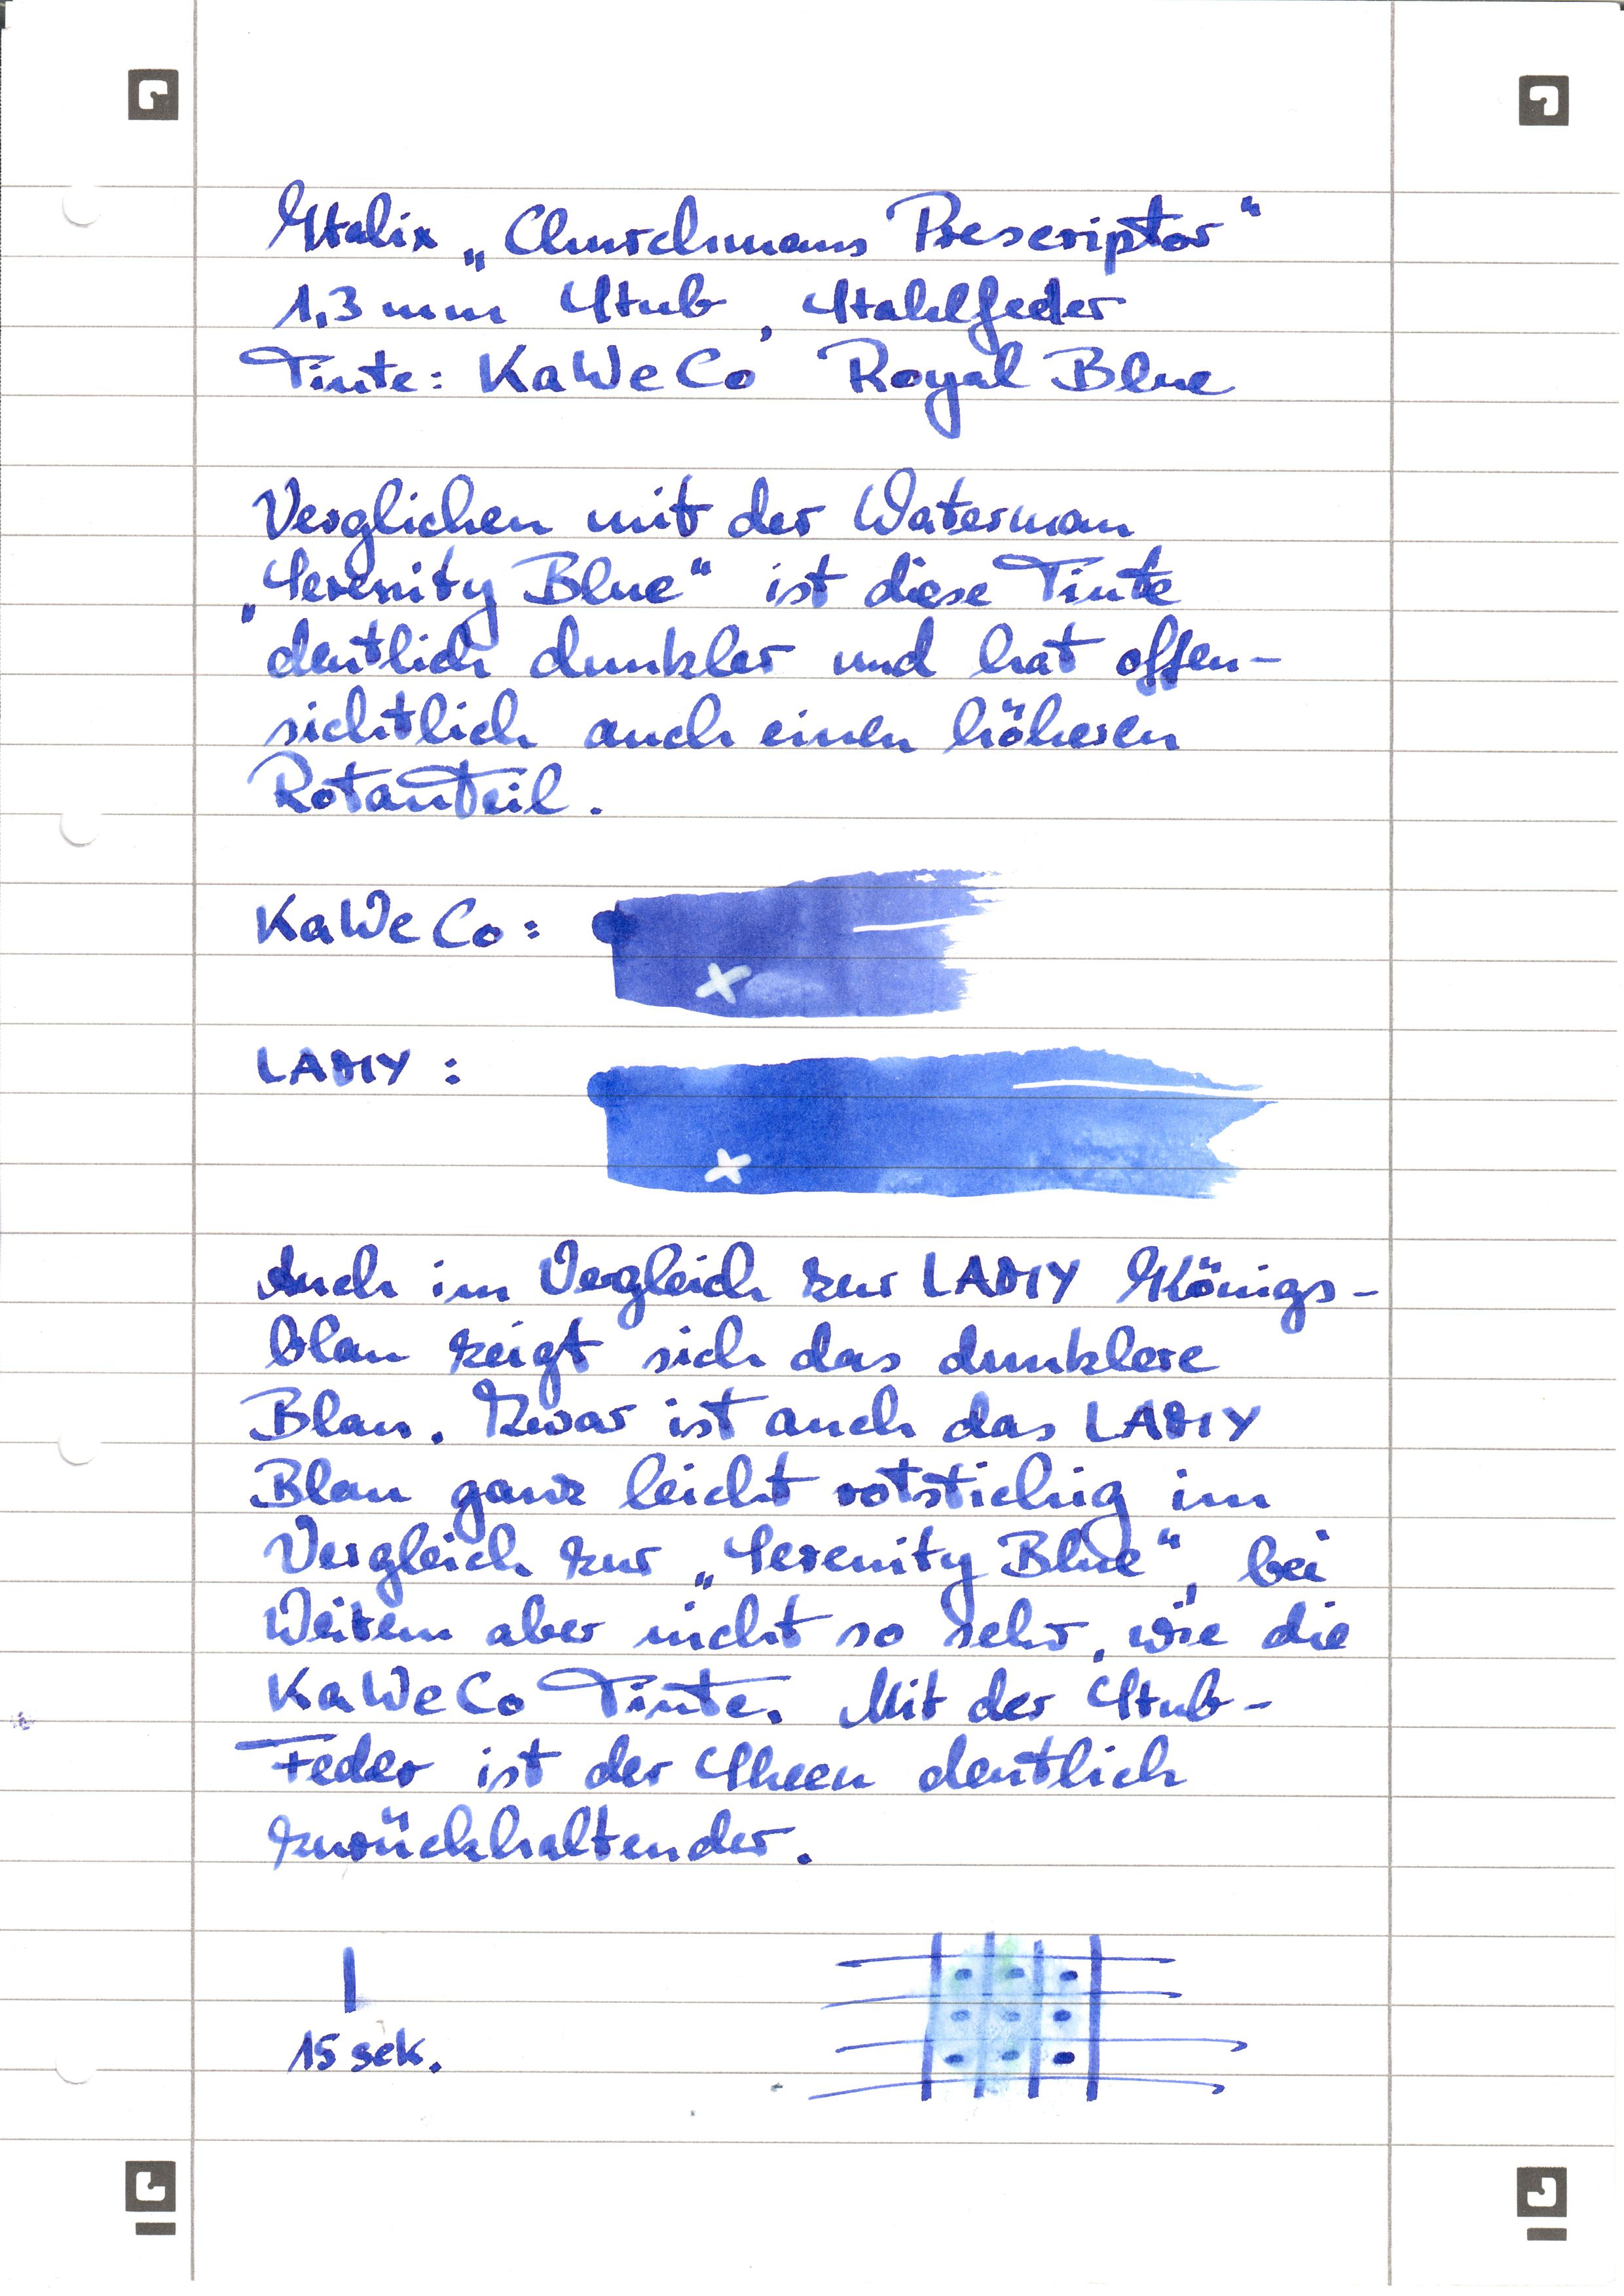 Italix „Churchmans Prescriptor“
1,3 mm Stub, Stahlfeder
Tinte: KaWeCo Royal Blue
Verglichen mit der Waterman
„Serenity Blue“ ist diese Tinte
deutlich dunkler und hat offen-
sichtlich auch einen höheren
Rotanteil.
KaWeCo:
LAMY:
Auch im Vergleich zur LAMY Königs-
blau zeigt sich das dunklere
Blau. Zwar ist auch das LAMY
Blau ganz leicht rotstichig im
Vergleich zur „Serenity Blue“, bei
Weitem aber nicht so sehr, wie die
KaWeCo Tinte. Mit der Stub-
Feder ist der Sheen deutlich
zurückhaltender.
15 sek.